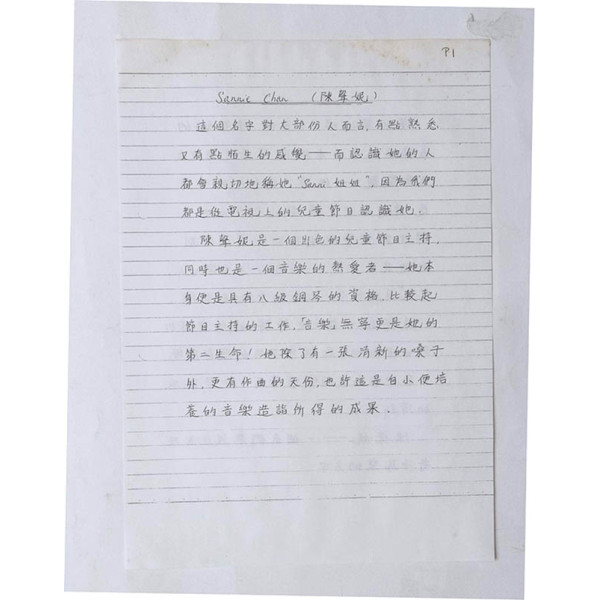 P.1
Sannie Chan (陳聲妮)
這個名字對大部份人而言,有點熟悉
又有點陌生的感覺——而認識她的人
都會親切地稱她"Sanni 姐姐",因為我們
都是從電視上的兒童節目認識她.
陳聲妮是一個出色的兒童節目主持,
同時也是一個音樂的熱愛者——她本
身便是具有八級鋼琴的資格,比較起
節目主持的工作,「音樂」無寧更是她的
第二生命!她除了有一張清新的嗓子
外,更有作曲的天份,也許這是自小便培
養的音樂造詣所得的成果.